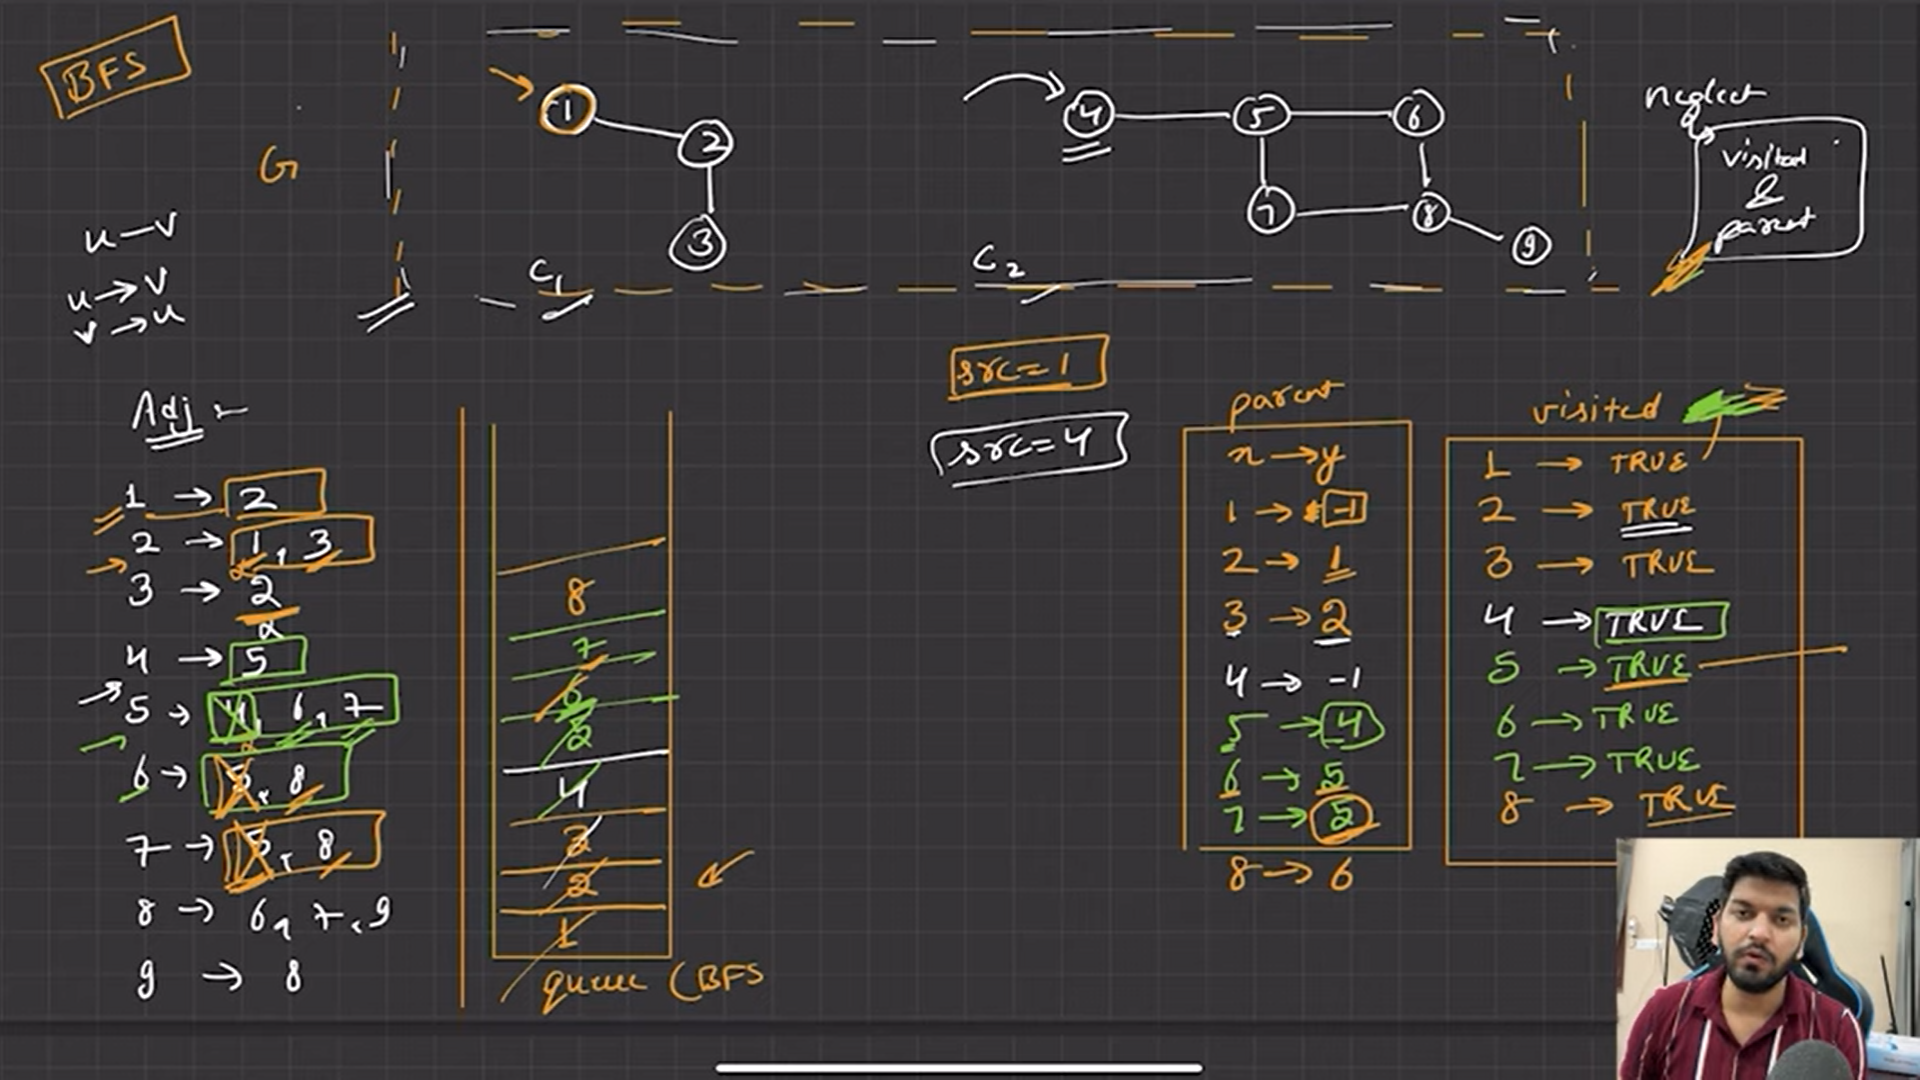 BFS
G
u — v
u → v
v → u
1
2
3
C1
4
5
6
7
8
9
C2
neglect
visited
&
parent
src = 1
src = 4
Adj
1 → 2
2 → 1, 3
3 → 2
4 → 5
5 → 4, 6, 7
6 → 5, 8
7 → 5, 8
8 → 6, 7, 9
9 → 8
8
7
4
3
2
1
queue (BFS
parent
x → y
1 → -1
2 → 1
3 → 2
4 → -1
5 → 4
6 → 5
7 → 5
8 → 6
visited
1 → TRUE
2 → TRUE
3 → TRUE
4 → TRUE
5 → TRUE
6 → TRUE
7 → TRUE
8 → TRUE